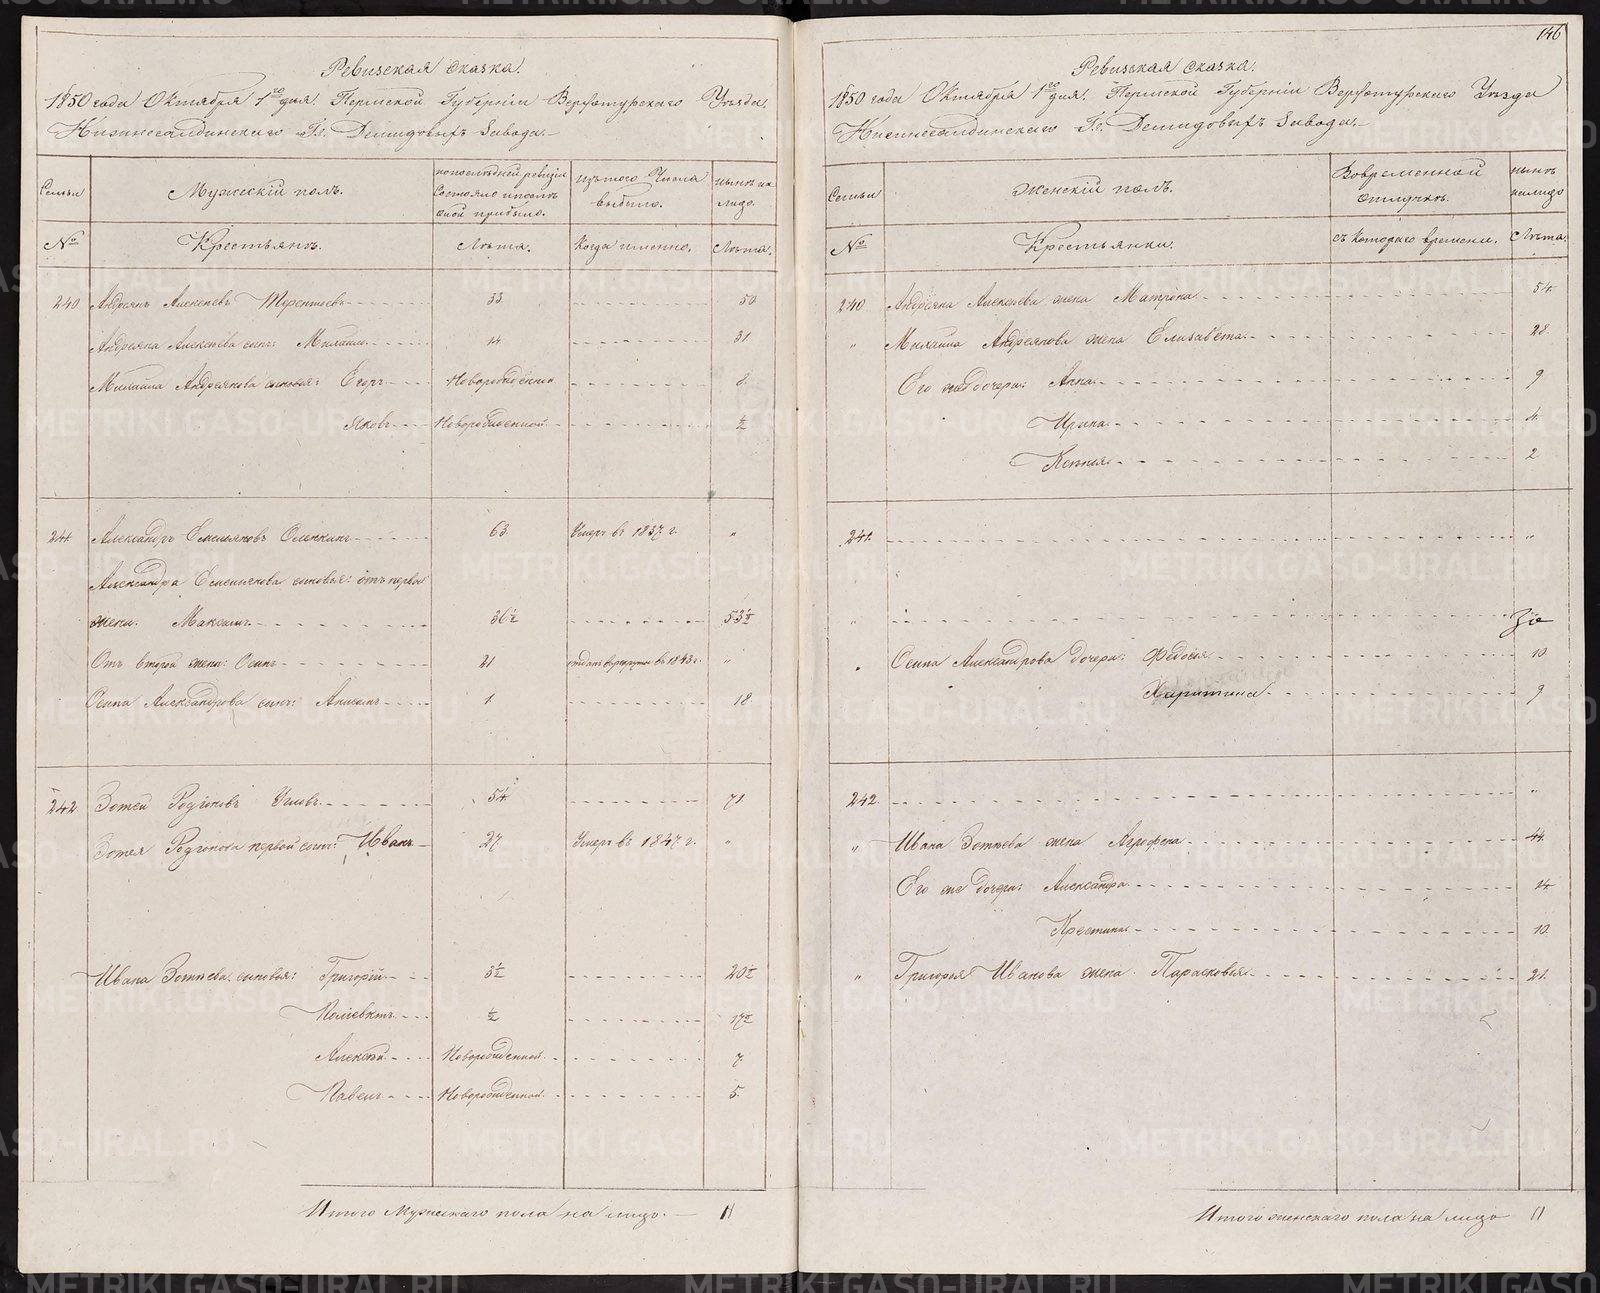 Ревизская сказка.
1850 года Октября 1го дня. Пермской Губернiи Верхотурскаго Уѣзда.
Нижнесалдинскаго Гг. Демидовыхъ Завода.
Семьи
Мужескiй полъ.
по последней ревизiи состояло и после оной прибыло.
изъ того Числа выбыло.
нынѣ на лицо.
№
Крестьянъ.
Лѣта.
Когда именно.
Лѣта.
240 Андреянъ Алексѣевъ Терентьевъ 33. 50
Андреяна Алексѣева сынъ: Михаилъ 14 31
Михаила Андреянова сыновья: Егоръ Новорожденной 8.
Яковъ Новорожденной ½
241 Александръ Емельяновъ 63. Умеръ въ 1837 г. "
Александра Емельянова сыновья: отъ первой
жены: Максимъ 36½ 53½
Отъ второй жены: Осипъ 21 отданъ в рекруты въ 1843 г. "
Осипа Александрова сынъ: Анисимъ 1. 18
242 Зотей Родiоновъ 54. 71
Зотея Родiонова первой сынъ: Иванъ 27. Умеръ въ 1847 г. "
Ивана Зотѣева сыновья: Григорiй 3½ 20½
Полiевктъ ½ 17½
Алексѣй Новорожденной 7
Павелъ Новорожденной 5
Итого Мужескаго пола на лицо. 11
146
Ревизская сказка.
1850 года Октября 1го дня. Пермской Губернiи Верхотурскаго Уѣзда
Нижнесалдинскаго Гг. Демидовыхъ Завода.
Семьи
Женскiй полъ.
Во временной отлучкѣ.
нынѣ на лицо
№
Крестьянки.
съ котораго времени.
Лѣта.
240 Андреяна Алексѣева жена Матрона 54.
" Михаила Андреянова жена Елизавета 28.
Его же дочери: Анна 9
Ирина 4.
Ксенья 2
241. "
"
" Осипа Александрова дочери: Федосья 10.
Харитина 9
242. "
" Ивана Зотѣева жена Агрофена 44.
Его же дочери: Александра 14.
Крестина 10.
" Григорья Иванова жена Парасковья 21.
Итого женскаго пола на лицо 11
METRIKI.GASO-URAL.RU